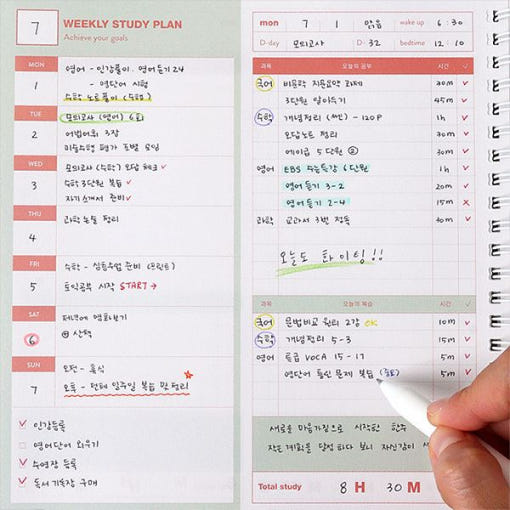 7
WEEKLY STUDY PLAN
Achieve your goals
MON
1
영어 - 인강풀이, 영어듣기 24
- 영단어 시험
수학 노트풀이 (수행)
TUE
2
모의고사 (영어) 6회
어법어휘 3강
WED
3
모의고사 (수학) 오답 체크 ✓
수학 3단원 복습 ✓
자기소개서 준비 ✓
THU
4
과학 노트 정리
FRI
5
수학 - 심화수업 준비 (프린트)
토익공부 시작 START →
SAT
6
저녁에 영화보기
산책
SUN
7
오전 - 휴식
오후 - 전체 일주일 복습 및 정리
✓ 인강등록
영어단어 외우기
✓ 수영장 등록
✓ 독서기록장 구매
mon 7 1 맑음 wake up 6 : 30
D-day 모의고사 D- 32 bedtime 12 : 10
과목 오늘의 공부 시간 ✓
국어 비문학 지문요약 과제 30m ✓
3단원 알아두기 45m ✓
수학 개념정리 (쎈) - 120P 1h ✓
오답노트 정리 30m ✓
에이급 5단원 ② 30m ✓
영어 EBS 수능특강 6단원 1h ✓
영어듣기 3-2 20m ✓
영어듣기 2-4 15m ✗
과학 교과서 3번 정독 30m ✓
오늘도 화이팅!!
과목 오늘의 복습 시간 ✓
국어 문법비교 원리 2강 OK 10m ✓
수학 개념정리 5-3 15m ✓
영어 등급 VOCA 15-17 5m ✓
영단어 틀린 문제 복습 (중요) 5m ✓
새로운 마음가짐으로 시작한 한주
작은계획을 달성 하다 보니 자신감이
Total study 8 H 30 M